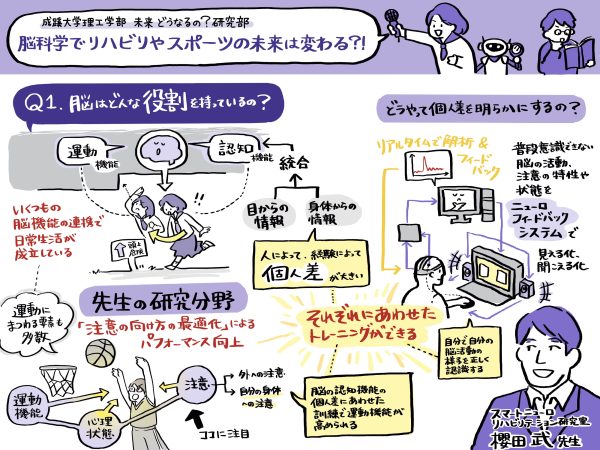 成蹊大学理工学部 未来 どうなるの?研究部
脳科学でリハビリやスポーツの未来は変わる?!
Q1. 脳はどんな役割を持っているの?
運動
機能
認知
機能
!!
統合
目からの
情報
身体からの
情報
いくつもの
脳機能の連携で
日常生活が
成立している
頭上
危険
人によって、経験によって
個人差が大きい
先生の研究分野
「注意の向け方の最適化」による
パフォーマンス向上
運動に
まつわる要素も
多数
運動
機能
心理
状態
注意
外への注意
自分の身体
への注意
ココに注目
脳の認知機能の
個人差にあわせた
訓練で運動機能が
高められる
それぞれにあわせた
トレーニングができる
どうやって個人差を明らかにするの?
リアルタイムで解析 &
フィード
バック
普段意識できない
脳の活動、
注意の特性や
状態を
ニューロ
フィードバック
システムで
見える化、
聞こえる化
自分で自分の
脳活動の
様子を正しく
認識する
スマートニューロ
リハビリテーション研究室
櫻田 武 先生